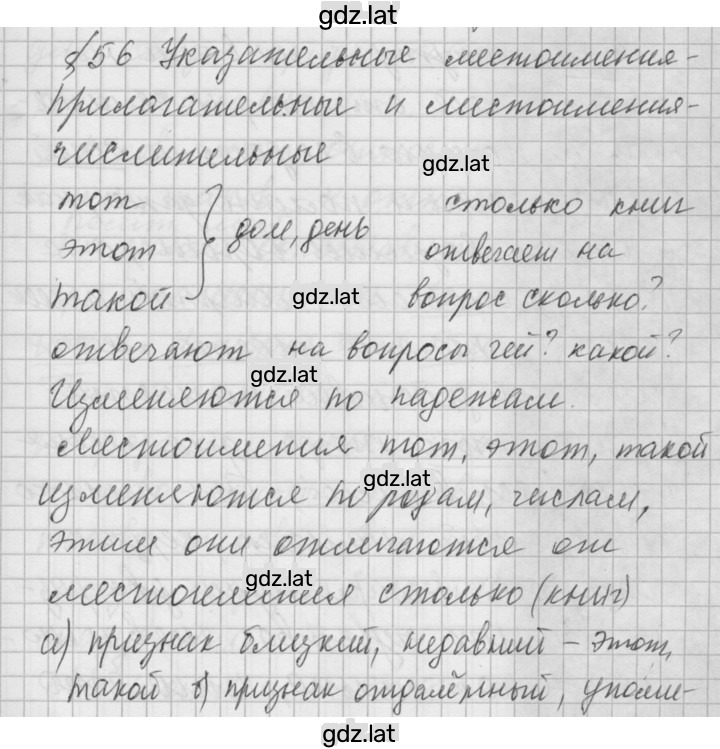 gdz.lat
§56 Указательные местоимения-
прилагательные и местоимения-
числительные
gdz.lat
тот столько книг
этот } дом, день отвечает на
такой gdz.lat вопрос сколько?
отвечают на вопросы чей? какой?
gdz.lat
Изменяются по падежам.
Местоимения тот, этот, такой
gdz.lat
изменяются по родам, числам,
этим они отличаются от
gdz.lat
местоимения столько (книг)
а) признак близкий, недавний – этот,
такой б) признак отдалённый, упомя-
gdz.lat